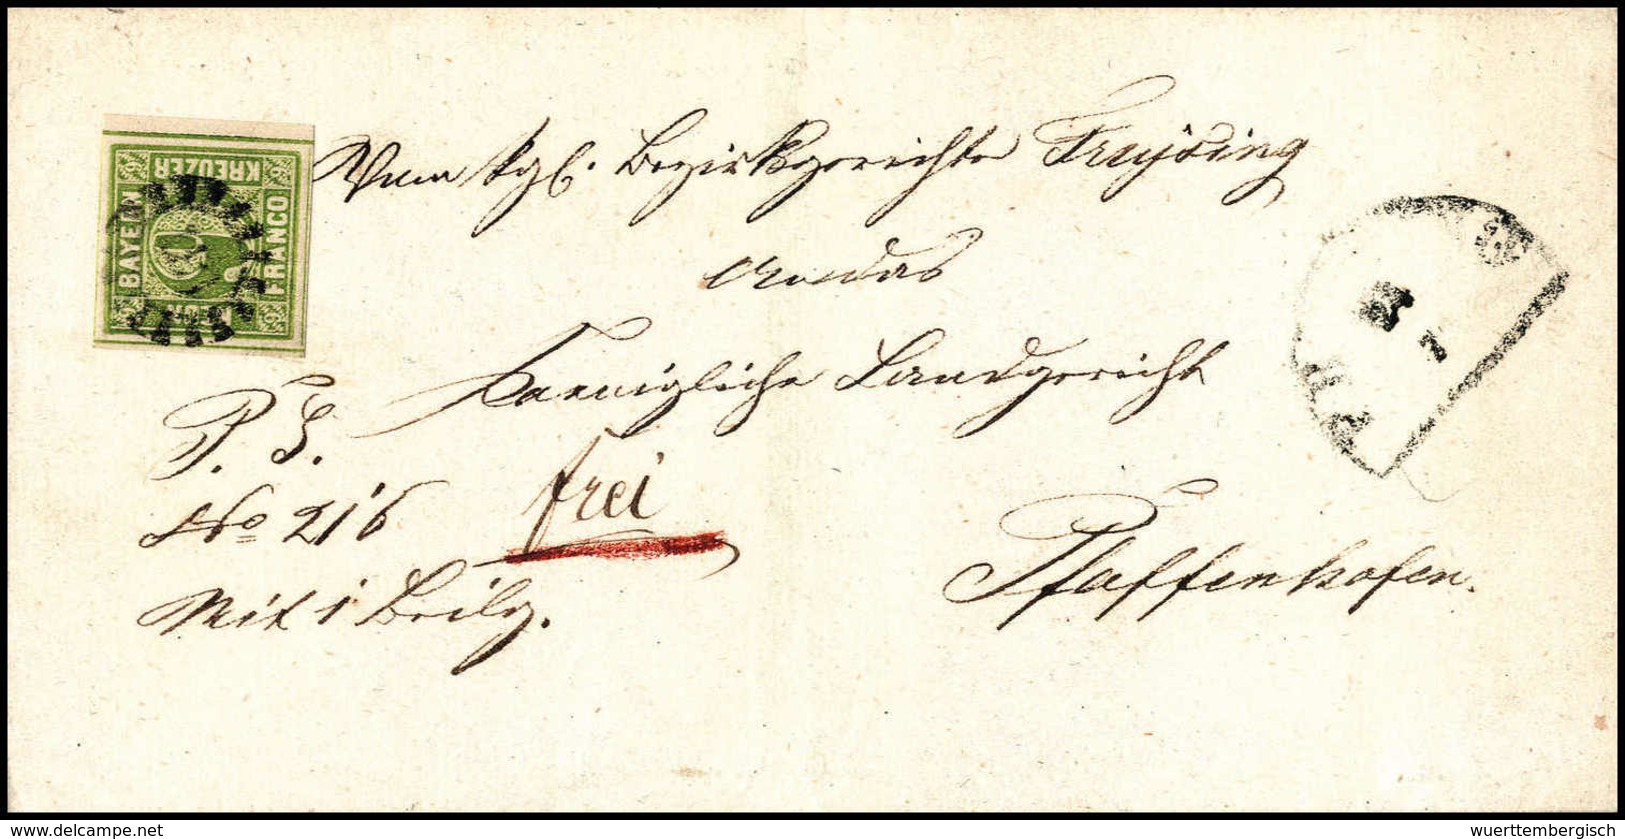 BAYERN
KREUZER
FRANCO
Vom kgl. Bezirksgerichte Freysing
an das
Koenigliche Landgericht
P. S.
No 216
frei
Pfaffenhofen.
Mit 1 Beilg.
delcampe.net
wuerttembergisch